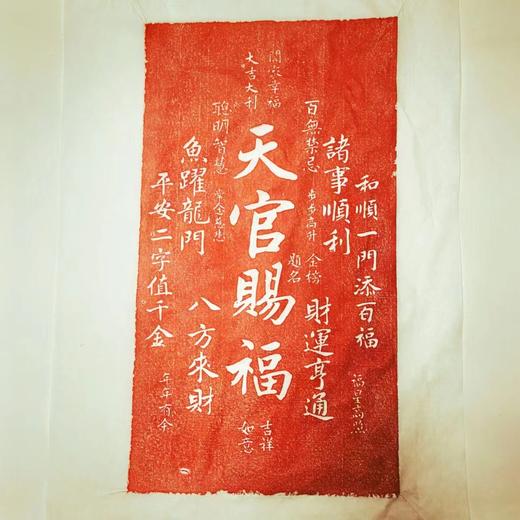 和順一門添百福
福星高照
諸事順利
財運亨通
百無禁忌
步步高升
金榜
題名
闔家幸福
大吉大利
天官賜福
吉祥
如意
聰明智慧
魚躍龍門
八方來財
平安二字值千金
年年有余